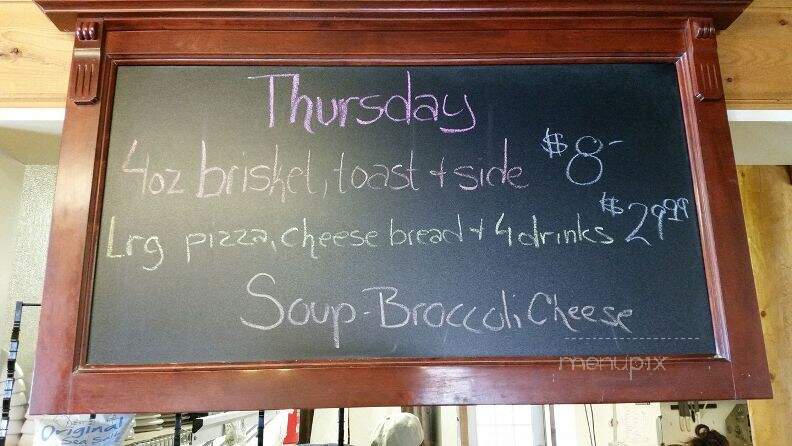 Thursday
4oz brisket, toast + side $8-
Lrg pizza, cheese bread + 4 drinks $29.99
Soup-Broccoli Cheese
menupix
Original
Sea Salt